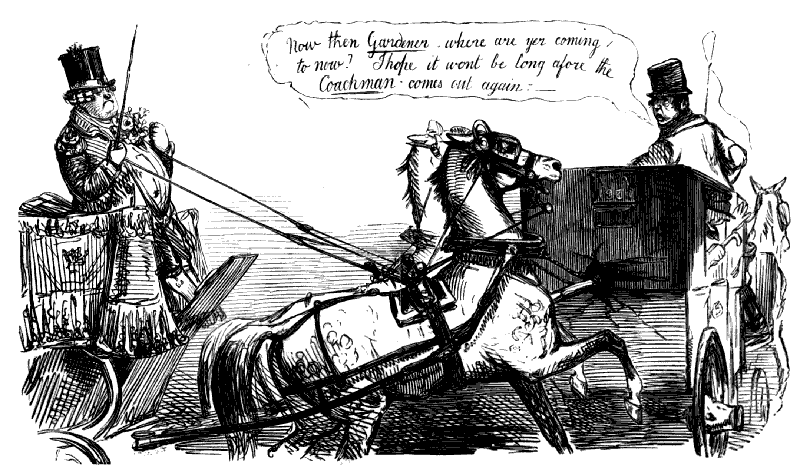 Now then Gardener where are yer coming
to now? I hope it wont be long afore the
Coachman comes out again:—